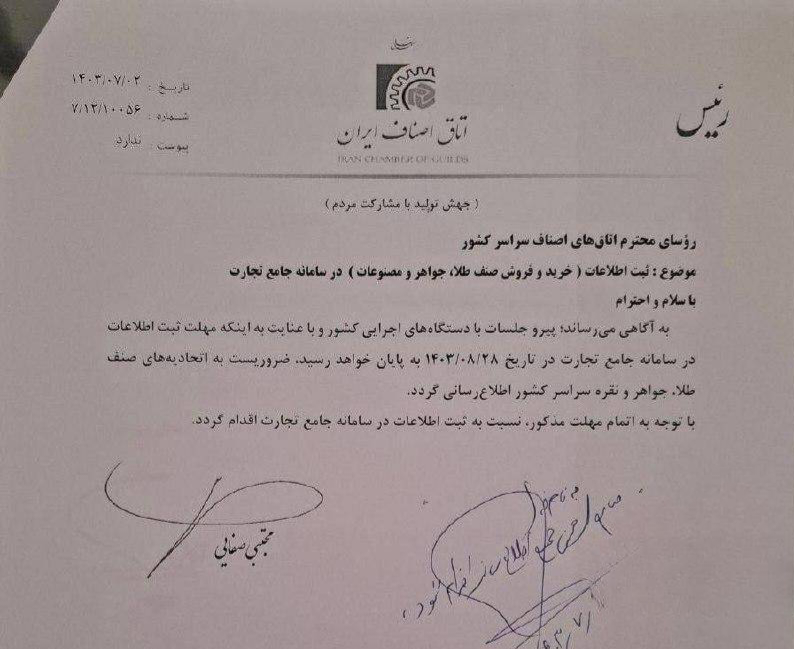 رئیس
اتاق اصناف ایران
IRAN CHAMBER OF GUILDS
تاریخ : ۱۴۰۳/۰۷/۰۲
شماره : ۷/۱۲/۱۰۰۵۶
پیوست : ندارد
( جهش تولید با مشارکت مردم )
رؤسای محترم اتاق‌های اصناف سراسر کشور
موضوع : ثبت اطلاعات ( خرید و فروش صنف طلا، جواهر و مصنوعات ) در سامانه جامع تجارت
با سلام و احترام
به آگاهی می‌رساند؛ پیرو جلسات با دستگاه‌های اجرایی کشور و با عنایت به اینکه مهلت ثبت اطلاعات
در سامانه جامع تجارت در تاریخ ۱۴۰۳/۰۸/۲۸ به پایان خواهد رسید، ضروریست به اتحادیه‌های صنف
طلا، جواهر و نقره سراسر کشور اطلاع‌رسانی گردد.
با توجه به اتمام مهلت مذکور، نسبت به ثبت اطلاعات در سامانه جامع تجارت اقدام گردد.
مجتبی صفایی
اقدام شود